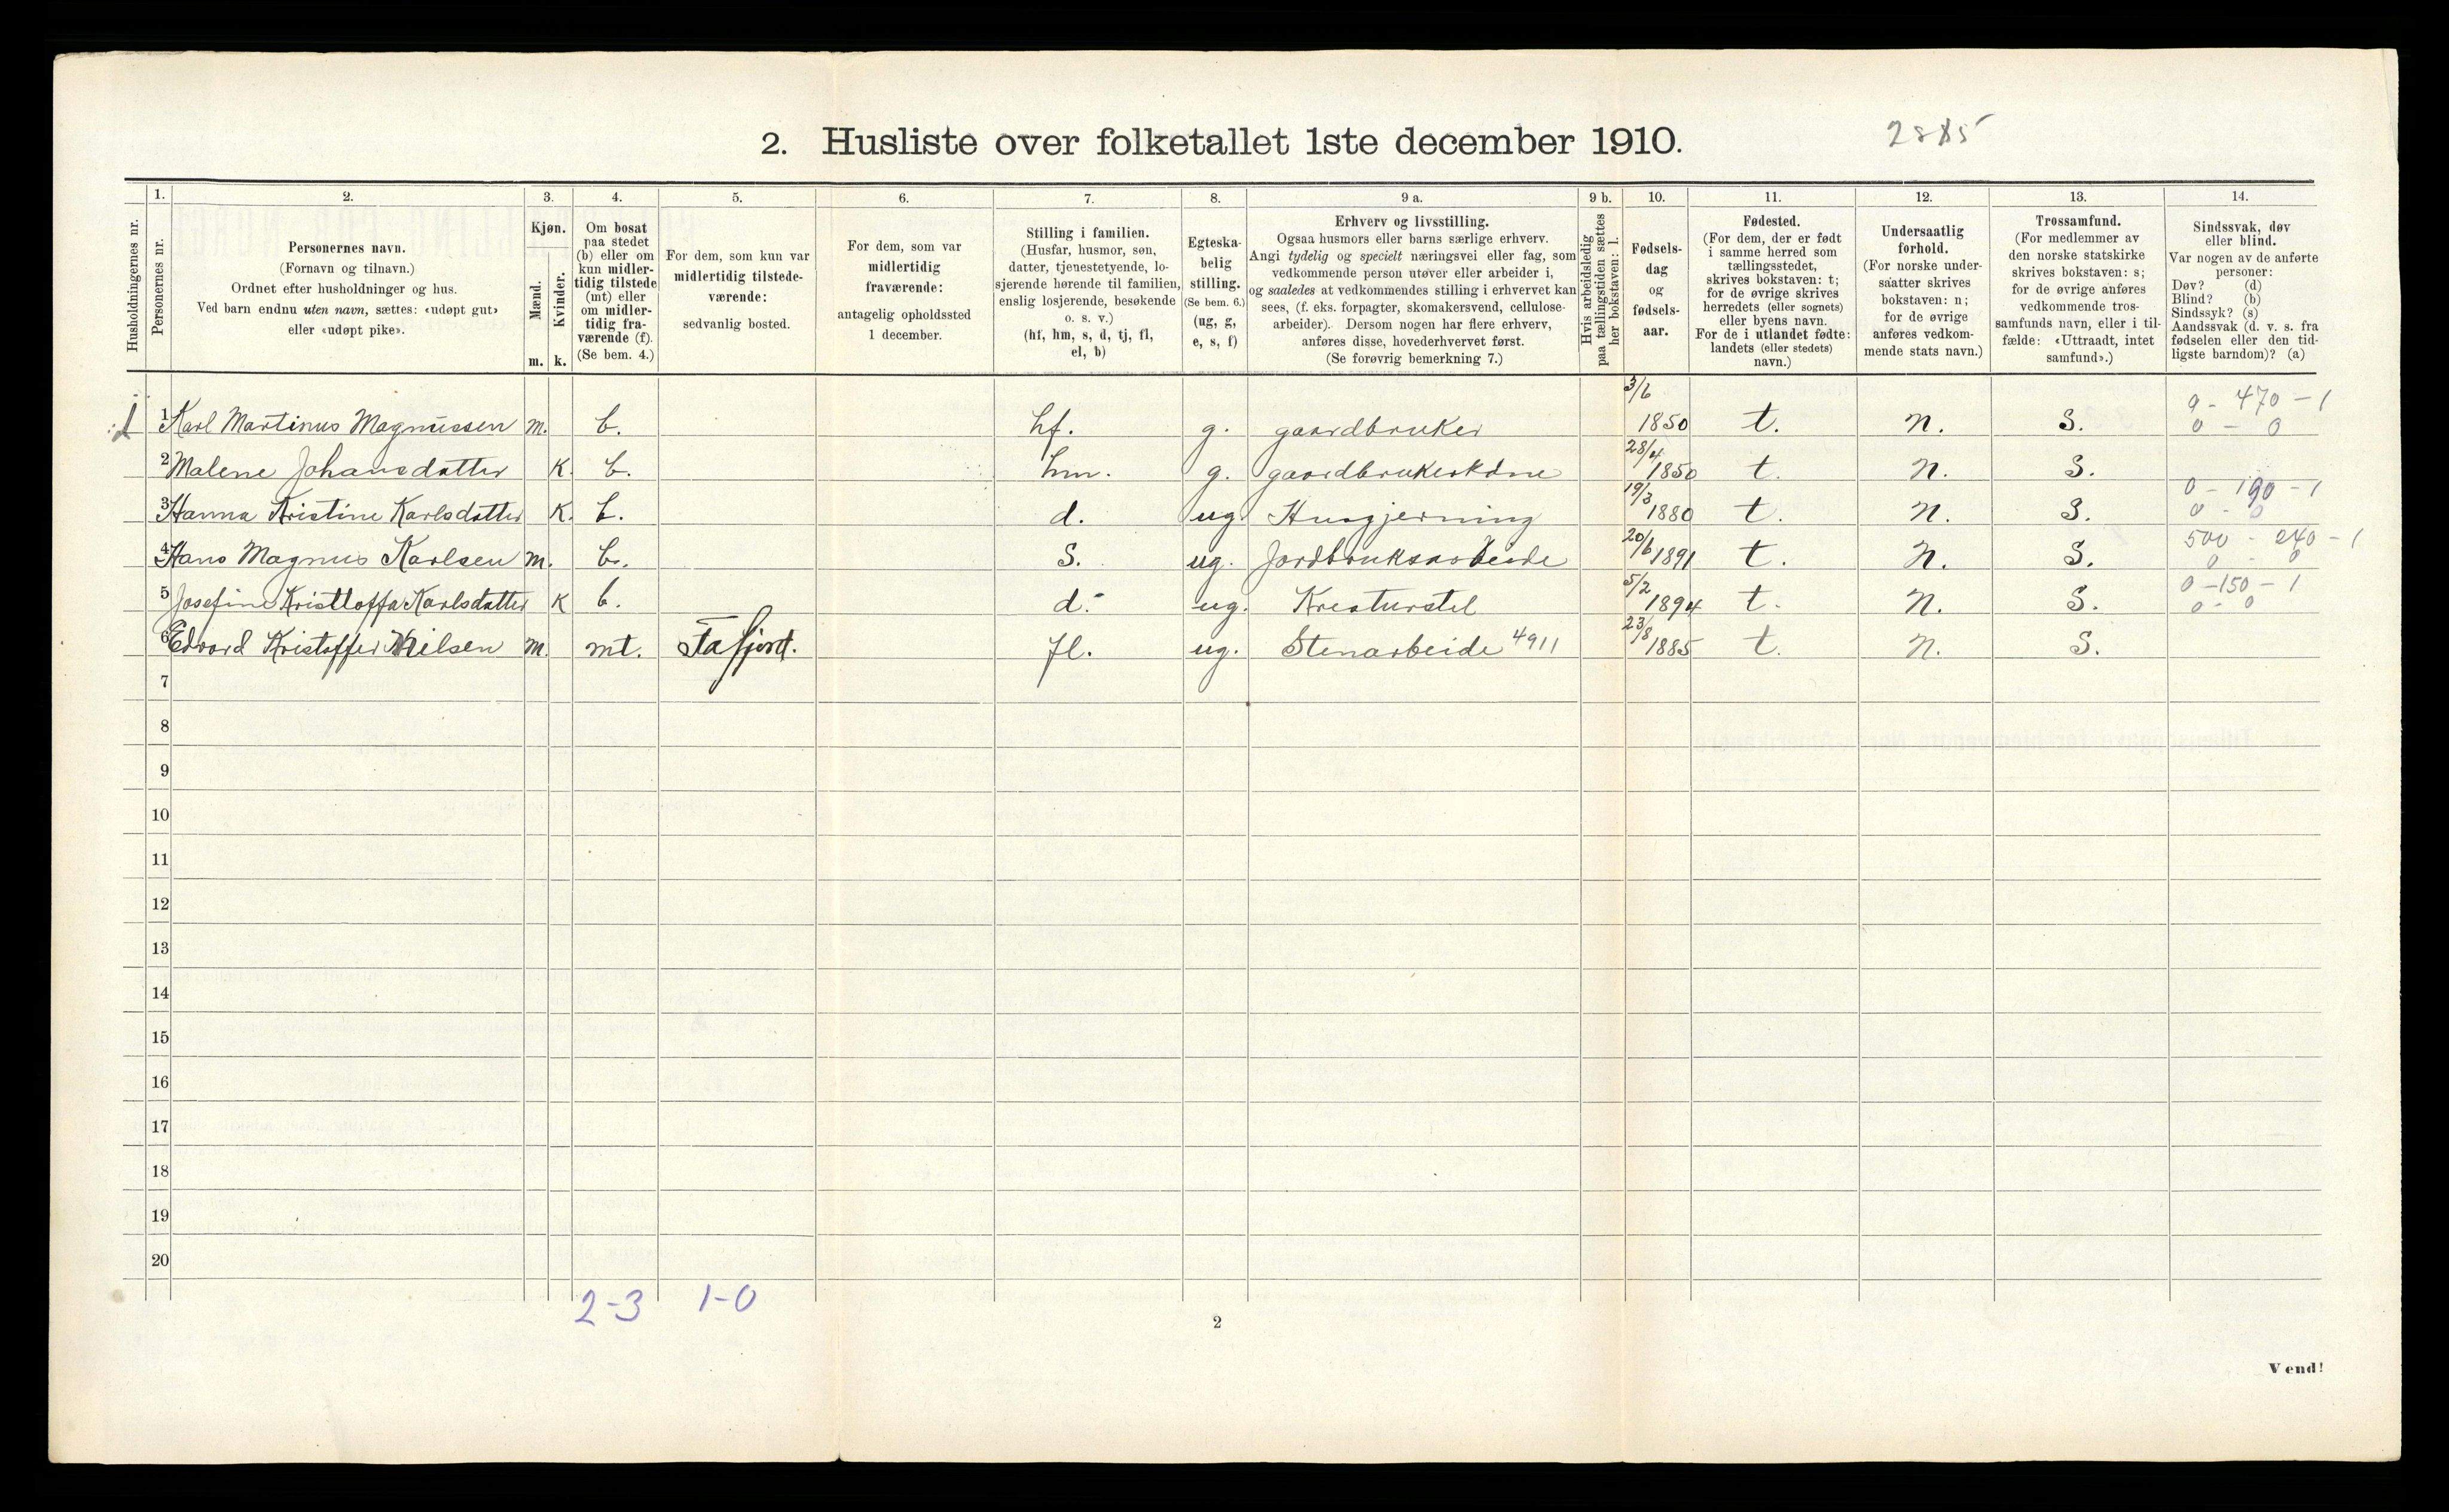 2. Husliste over folketallet 1ste december 1910.
1. 2. 3. 4. 5. 6. 7. 8. 9 a. 9 b. 10. 11. 12. 13. 14.
Husholdningernes nr.
Personernes nr.
Personernes navn.
(Fornavn og tilnavn.)
Ordnet efter husholdninger og hus.
Ved barn endnu uten navn, sættes: «udøpt gut»
eller «udøpt pike».
Kjøn.
Mænd.
m.
Kvinder.
k.
Om bosat
paa stedet
(b) eller om
kun midler-
tidig tilstede
(mt) eller
om midler-
tidig fra-
værende (f).
(Se bem. 4.)
For dem, som kun var
midlertidig tilstede-
værende:
sedvanlig bosted.
For dem, som var
midlertidig
fraværende:
antagelig opholdssted
1 december.
Stilling i familien.
(Husfar, husmor, søn,
datter, tjenestetyende, lo-
sjerende hørende til familien,
enslig losjerende, besøkende
o. s. v.)
(hf, hm, s, d, tj, fl,
el, b)
Egteska-
belig
stilling.
(Se bem. 6.)
(ug, g,
e, s, f)
Erhverv og livsstilling.
Ogsaa husmors eller barns særlige erhverv.
Angi tydelig og specielt næringsvei eller fag, som
vedkommende person utøver eller arbeider i,
og saaledes at vedkommendes stilling i erhvervet kan
sees, (f. eks. forpagter, skomakersvend, cellulose-
arbeider). Dersom nogen har flere erhverv,
anføres disse, hovederhvervet først.
(Se forøvrig bemerkning 7.)
Hvis arbeidsledig
paa tællingstiden sættes
her bokstaven: l.
Fødsels-
dag
og
fødsels-
aar.
Fødested.
(For dem, der er født
i samme herred som
tællingsstedet,
skrives bokstaven: t;
for de øvrige skrives
herredets (eller sognets)
eller byens navn.
For de i utlandet fødte:
landets (eller stedets)
navn.)
Undersaatlig
forhold.
(For norske under-
saatter skrives
bokstaven: n;
for de øvrige
anføres vedkom-
mende stats navn.)
Trossamfund.
(For medlemmer av
den norske statskirke
skrives bokstaven: s;
for de øvrige anføres
vedkommende tros-
samfunds navn, eller i til-
fælde: «Uttraadt, intet
samfund».)
Sindssvak, døv
eller blind.
Var nogen av de anførte
personer:
Døv? (d)
Blind? (b)
Sindssyk? (s)
Aandssvak (d. v. s. fra
fødselen eller den tid-
ligste barndom)? (a)
3/6 0 - 470 - 1
1 1 Karl Martinus Magnussen m. b. hf. g. gaardbruker 1850 t. n. S. 0 - 0
2 Malene Johansdatter K. b. hm. g. gaardbrukerkone 28/4 1850 t. n. S.
0 - 190 - 1
3 Hanna Kristine Karlsdatter K. b. d. ug. Husgjerning 19/3 1880 t. n. S. 0 - 0
500 - 240 - 1
4 Hans Magnus Karlsen m. b. S. ug. Jordbruksarbeide 20/6 1891 t. n. S. 0 - 0
0 - 150 - 1
5 Josefine Kristloffa Karlsdatter K b. d. ug. Kreaturstel 5/2 1894 t. n. S. 0 - 0
6 Edvard Kristoffer Nilsen m. mt. Tafjord. fl. ug. Stenarbeide 4911 23/8 1885 t. n. S.
7
8
9
10
11
12
13
14
15
16
17
18
19
20
2-3 1-0
2
Vend!